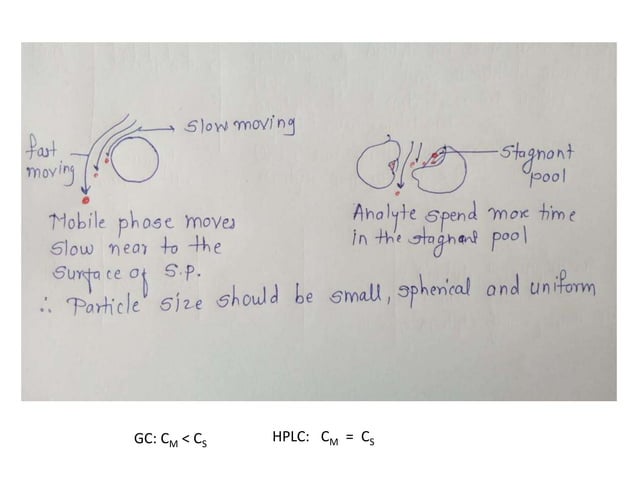 Slow moving
fast
moving
Stagnant
pool
Mobile phase moves
slow near to the
surface of S.P.
Analyte spend more time
in the stagnant pool
∴ Particle size should be small, spherical and uniform
GC: CM < CS
HPLC: CM = CS